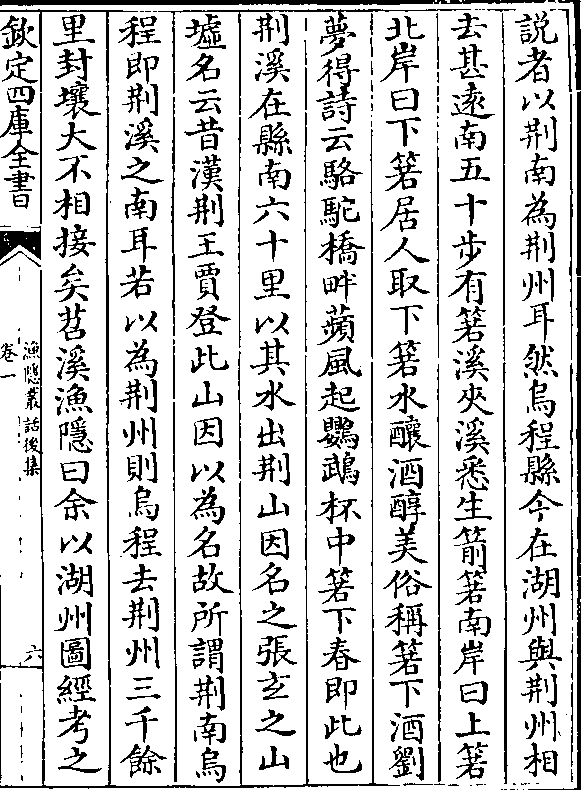 説者以荆南為荆州耳然烏程縣今在湖州與荆州相
去甚逺南五十步有箬溪夾溪悉生箭箬南岸曰上箬
北岸曰下箬居人取下箬水釀酒醇美俗稱箬下酒劉
夢得詩云駱駝橋畔蘋風起鸚鵡杯中箬下春即此也
荆溪在縣南六十里以其水出荆山因名之張𤣥之山
墟名云昔漢荆王賈登此山因以為名故所謂荆南烏
程即荆溪之南耳若以為荆州則烏程去荆州三千餘
里封壤大不相接矣苕溪漁隠曰余以湖州圖經考之
欽定四庫全書
漁隠叢話後集
卷一
六